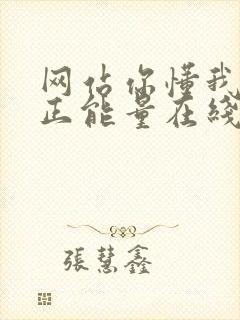 网估你懂我
正能量在线
張慧鑫